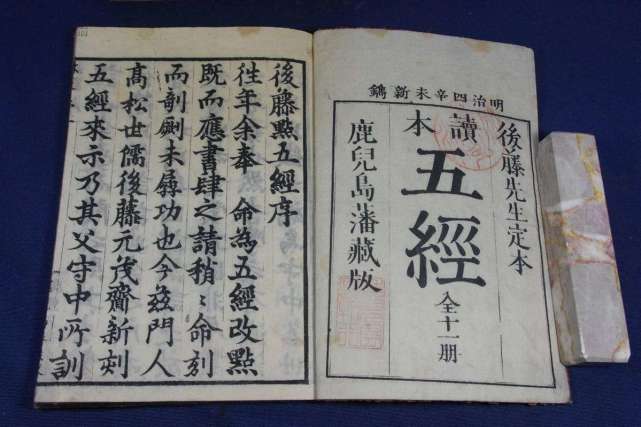 明治四辛未新鐫
後藤先生定本
讀本
五經
全十一册
鹿兒島藩藏版
後藤點五經序
徃年余奉 命為五經改點
既而應書肆之請稍〻命刻
而剞劂未尋功也今茲門人
髙松世儒後藤元茂齎新刻
五經來示乃其父守中所訓